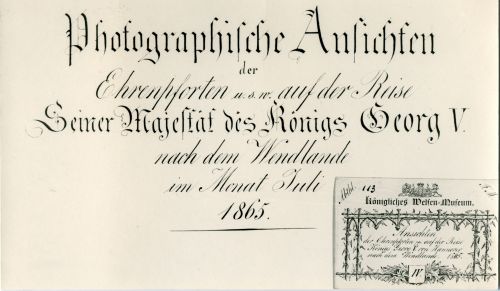 Photographische Ansichten
der
Ehrenpforten u.s.w. auf der Reise
Seiner Majestät des Königs Georg V.
nach dem Wendlande
im Monat Juli
1865.
113
Königliches Welfen-Museum.
Ansichten
der Ehrenpforten u. auf der Reise
Königs Georg V. von Hannover
nach dem Wendlande 1865.
IV